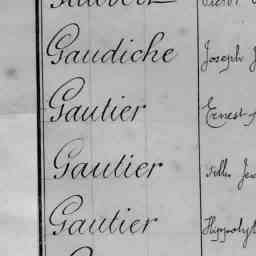 Gaudiche Joseph
Gautier Ernest
Gautier
Gautier Hippolyt